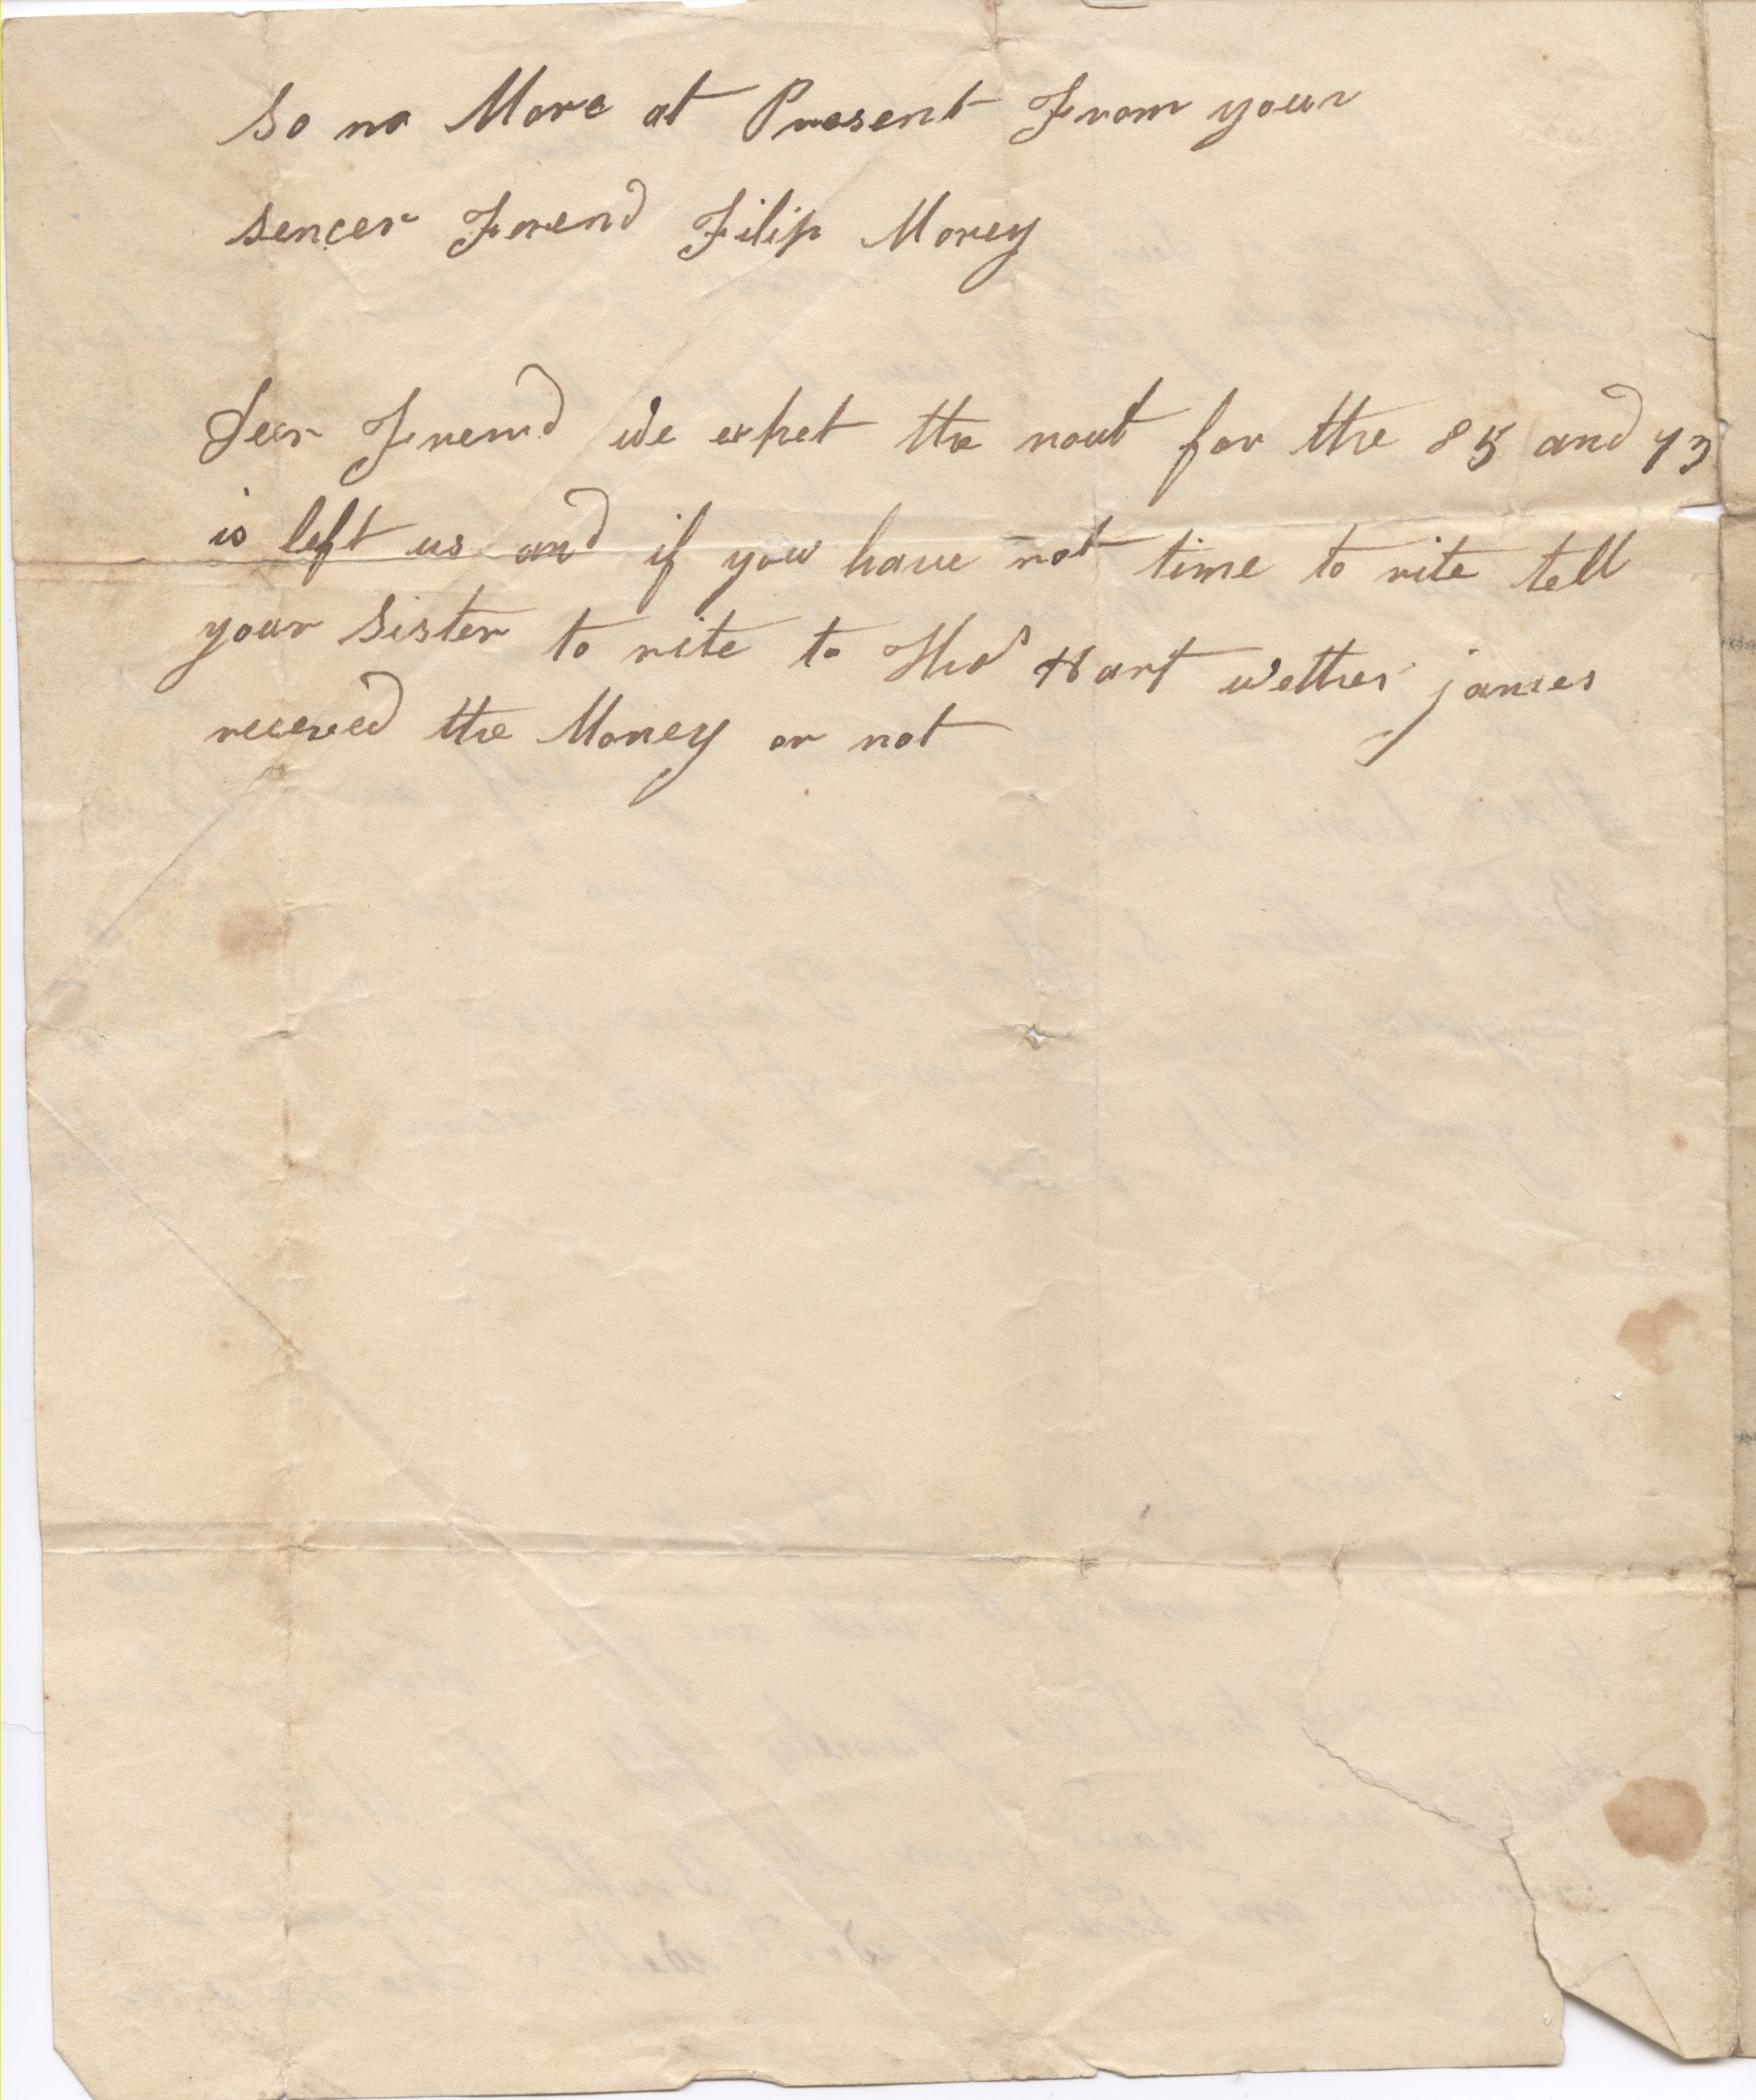 So no More at Present From your
sencer Frend Filip Morey
Deer Frend we expet the rout for the 85 and 73
is left us and if you have not time to rite tell
your Sister to rite to Thos Hart wether james
receved the Money or not